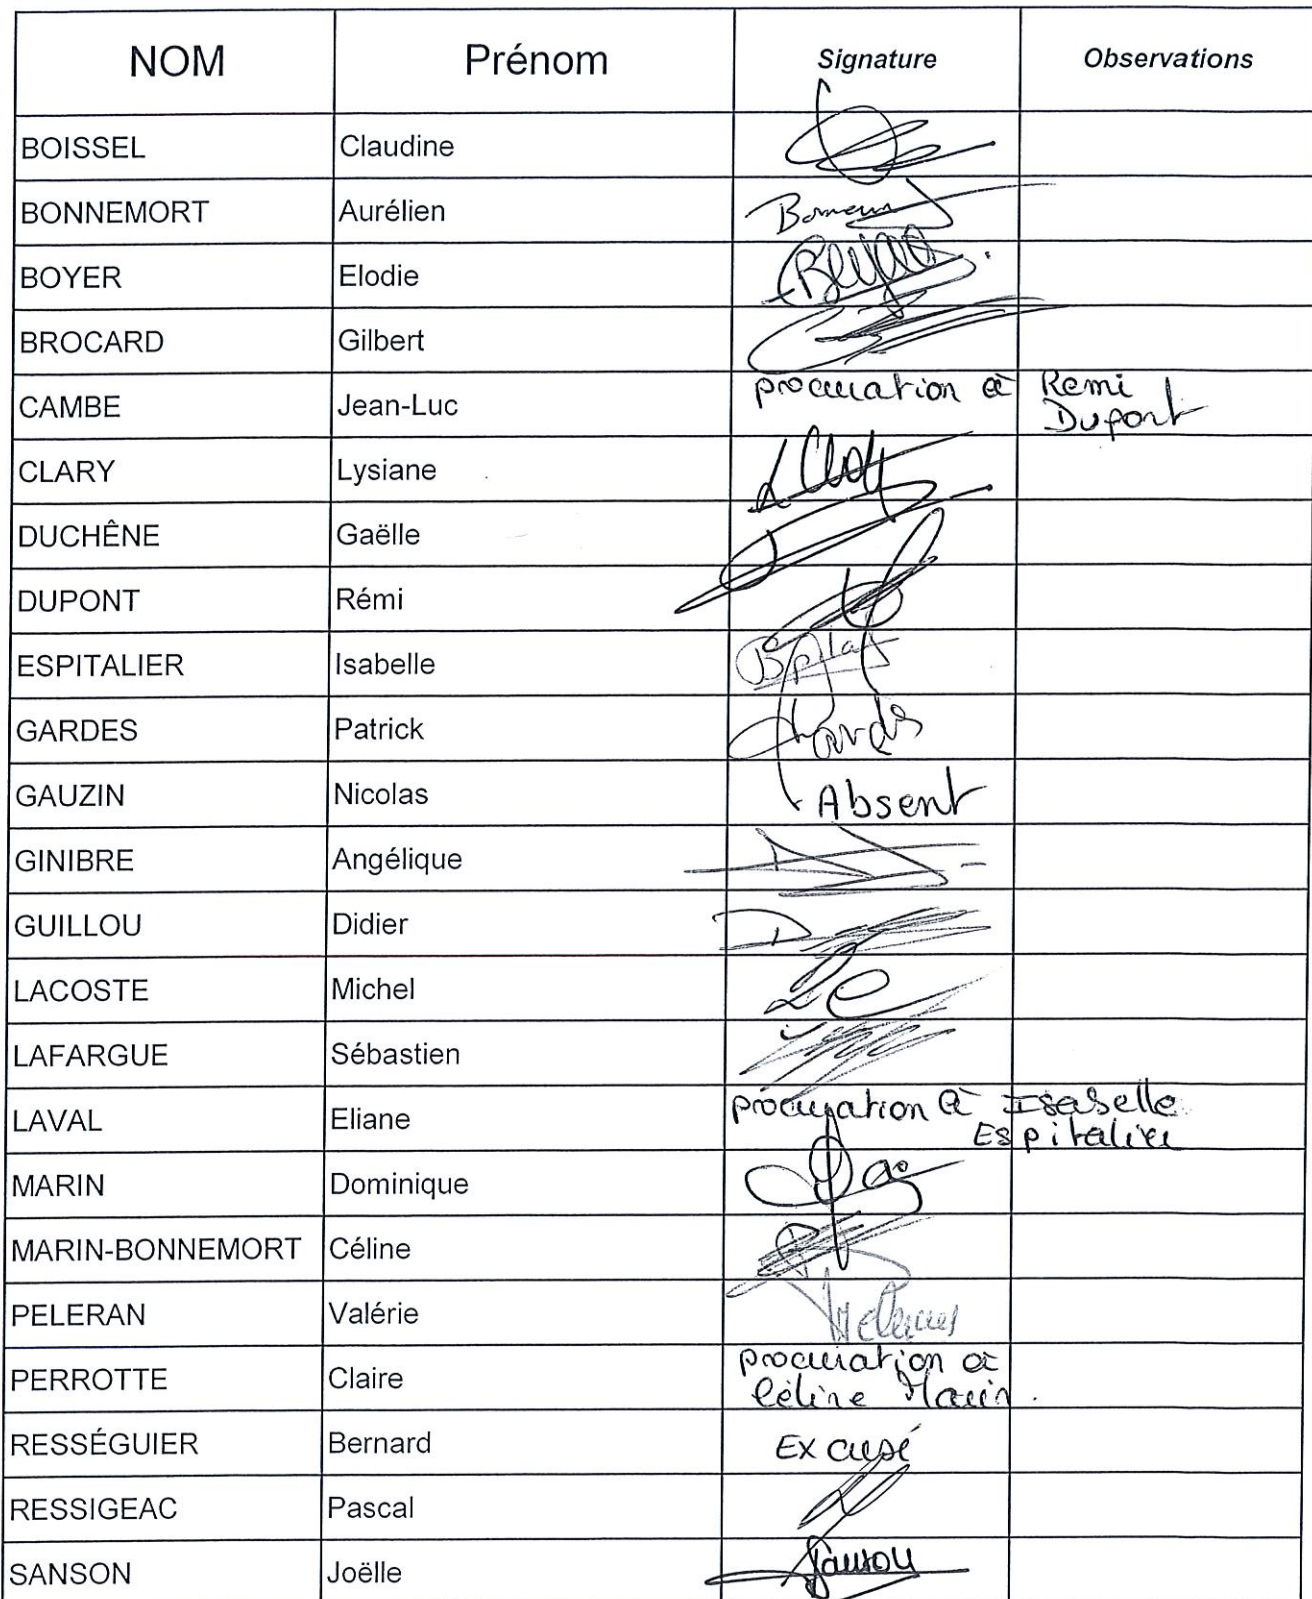 NOM Prénom Signature Observations
BOISSEL Claudine
BONNEMORT Aurélien
BOYER Elodie
BROCARD Gilbert
CAMBE Jean-Luc procuration à Remi
Dupont
CLARY Lysiane
DUCHÊNE Gaëlle
DUPONT Rémi
ESPITALIER Isabelle
GARDES Patrick
GAUZIN Nicolas Absent
GINIBRE Angélique
GUILLOU Didier
LACOSTE Michel
LAFARGUE Sébastien
LAVAL Eliane procuration à Isabelle
Espitalier
MARIN Dominique
MARIN-BONNEMORT Céline
PELERAN Valérie
PERROTTE Claire procuration à
Céline Marin.
RESSÉGUIER Bernard Excusé
RESSIGEAC Pascal
SANSON Joëlle Sanson